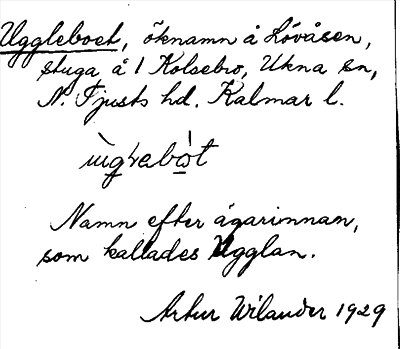 Uggleboet, öknamn å Lövåsen,
stuga å 1 Kolsebro, Ukna sn,
N. Tjusts hd. Kalmar l.
Namn efter ägarinnan,
som kallades Ugglan.
Artur Wilander 1929